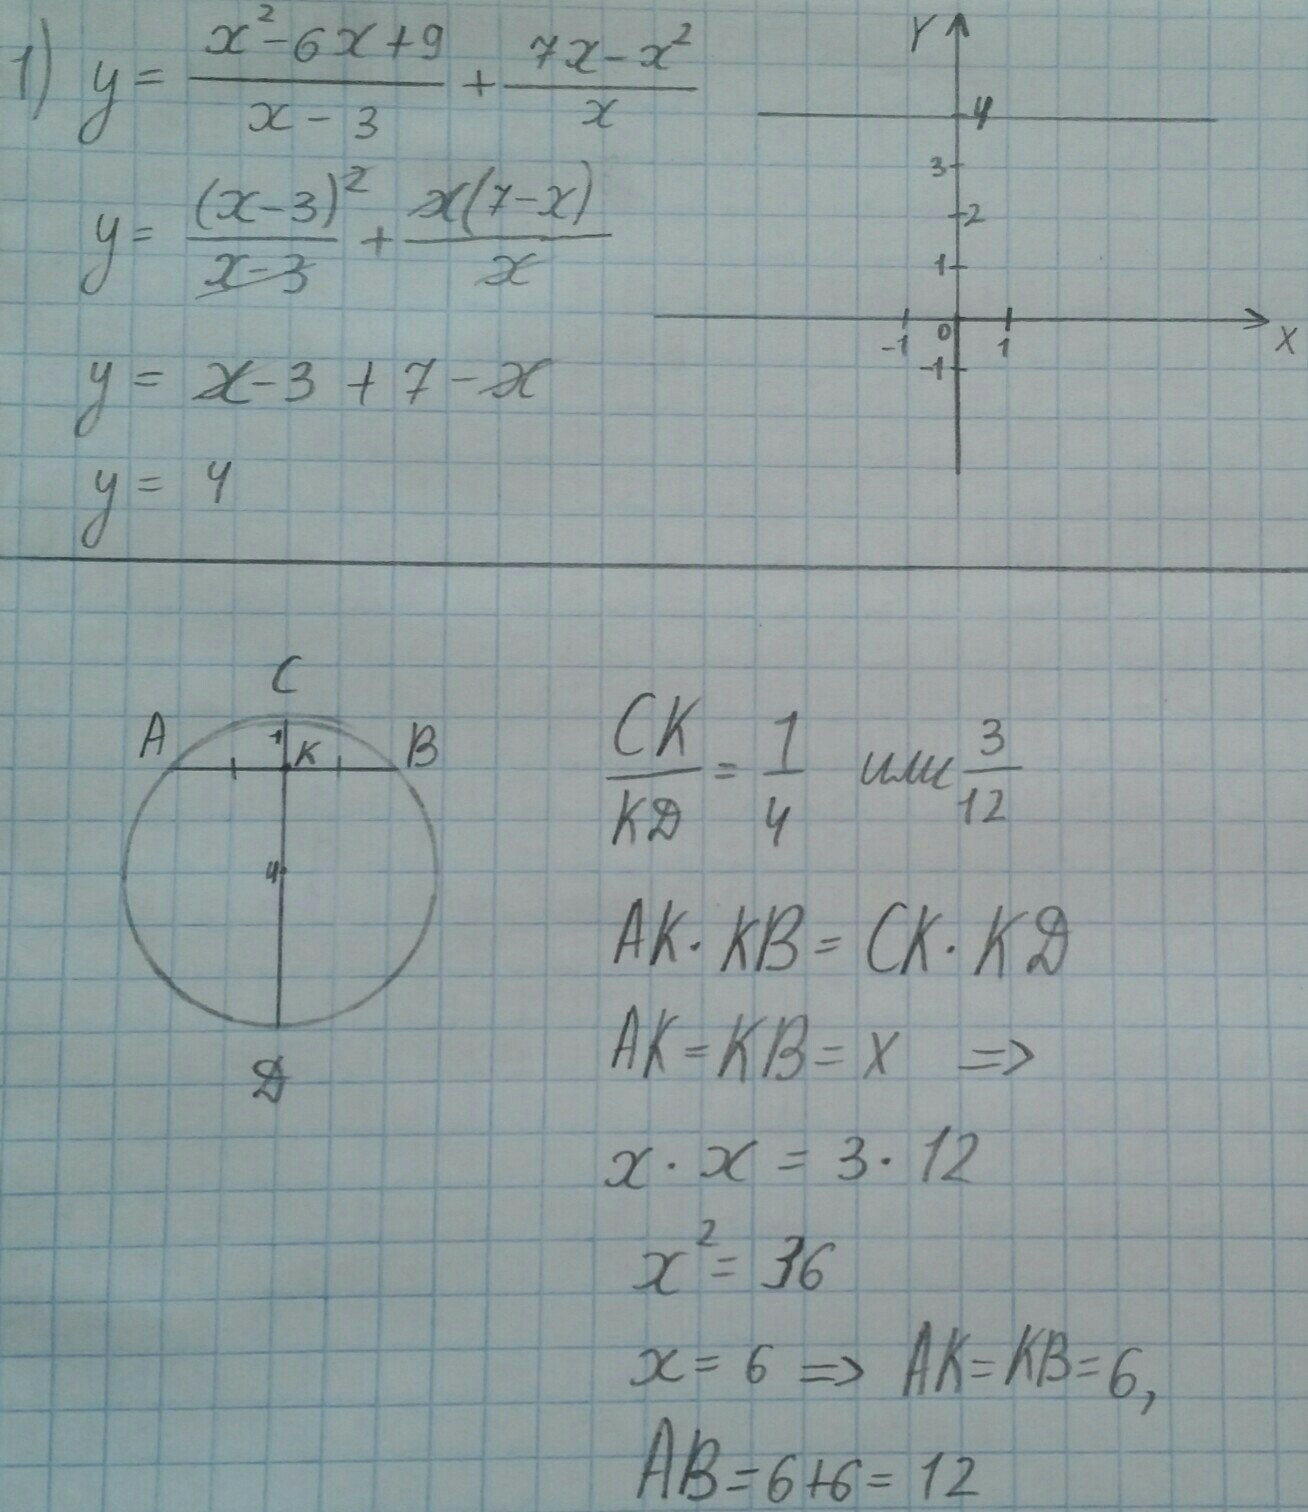 1) y = (x² - 6x + 9)/(x - 3) + (7x - x²)/x
y = (x-3)²/(x-3) + x(7-x)/x
y = x - 3 + 7 - x
y = 4
Y
4
3
2
1
-1 0 1 X
-1
C
A 1 K B
4
D
CK/KD = 1/4 или 3/12
AK · KB = CK · KD
AK = KB = x =>
x · x = 3 · 12
x² = 36
x = 6 => AK = KB = 6,
AB = 6+6 = 12